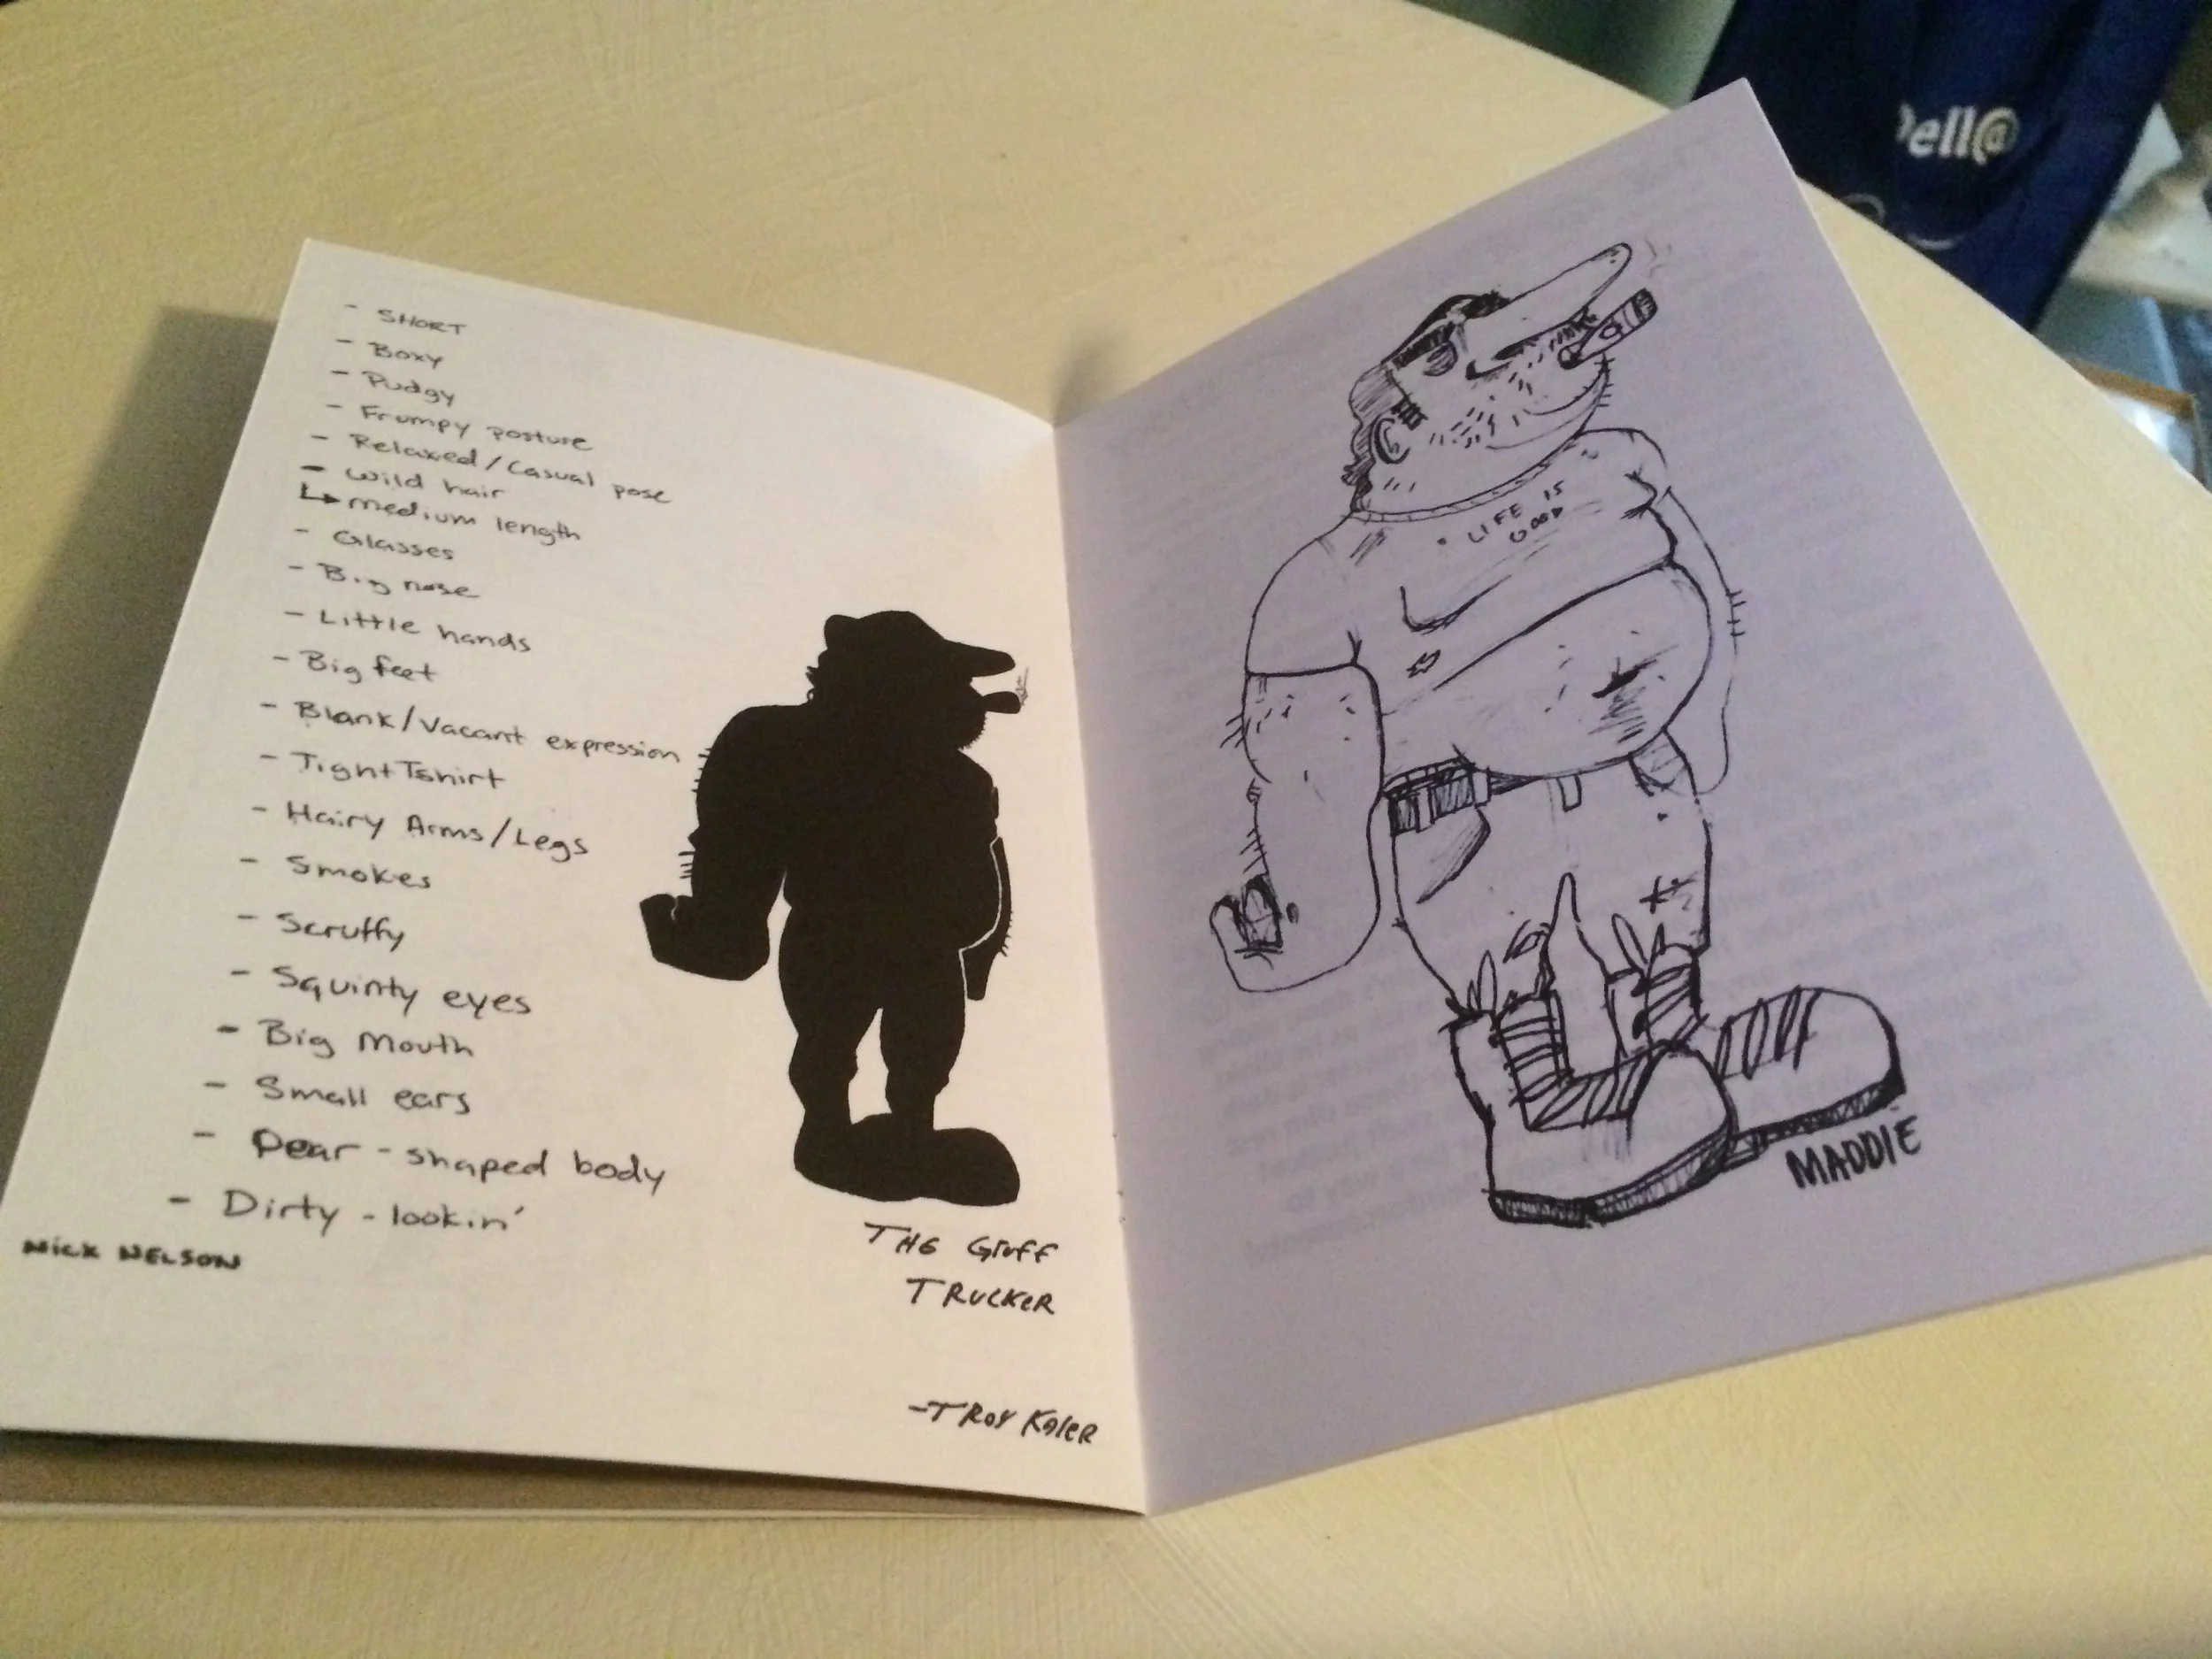 - SHORT
- Boxy
- Pudgy
- Frumpy posture
- Relaxed/Casual pose
- Wild hair
↳ medium length
- Glasses
- Big nose
- Little hands
- Big feet
- Blank/Vacant expression
- Tight Tshirt
- Hairy Arms/Legs
- Smokes
- Scruffy
- Squinty eyes
- Big Mouth
- Small ears
- Pear-shaped body
- Dirty-lookin'
NICK NELSON
THE GRUFF
TRUCKER
-TROY KALER
LIFE IS
GOOD
MADDIE
ell@